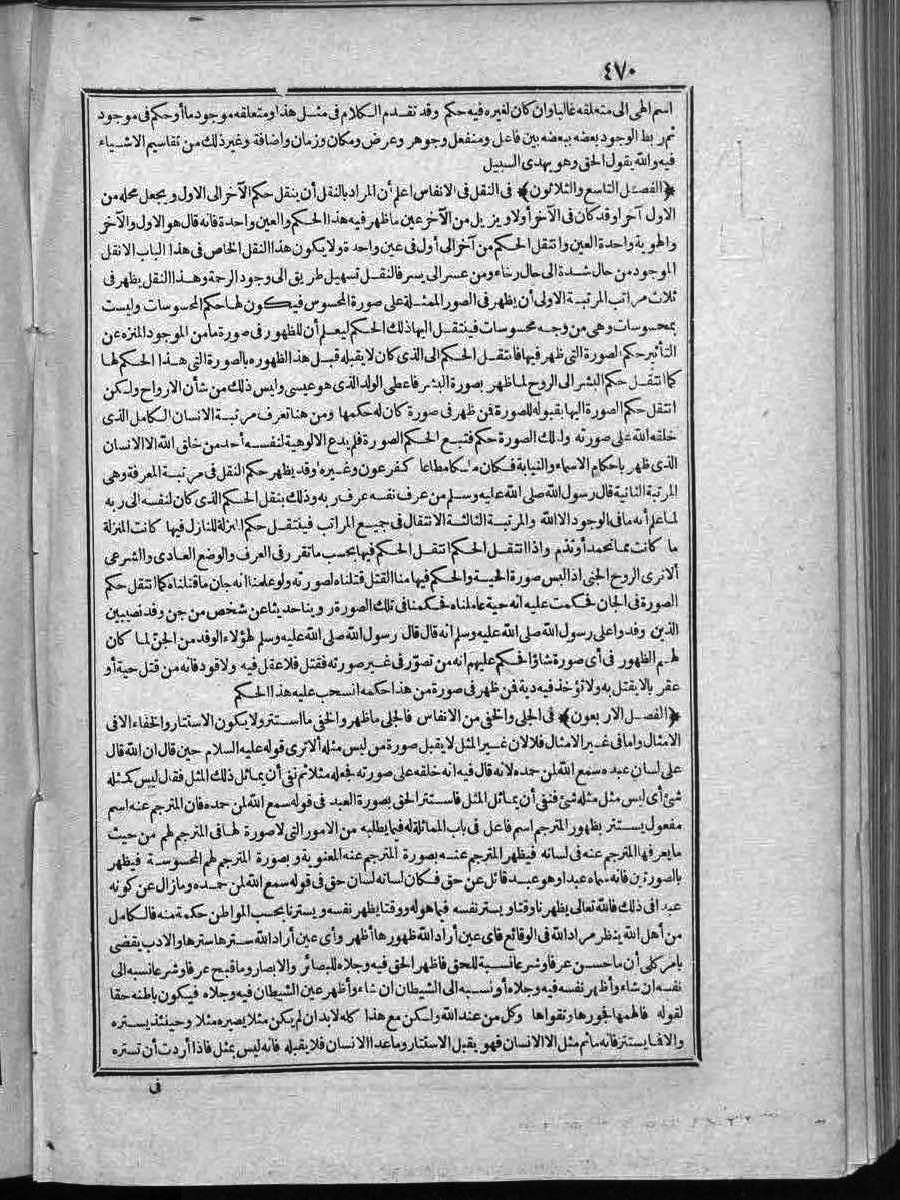 ٤٧٠
اسم الهى الى متعلقه غالبا وان كان لغيره فيه حكم وقد تقدم الكلام فى مثل هذا ومتعلقه موجود ما أو حكم فى موجود
ثم ربط الوجود بعضه ببعضه بين فاعل ومنفعل وجوهر وعرض ومكان وزمان واضافة وغير ذلك من تقاسيم الاشياء
فيه والله يقول الحق وهو يهدى السبيل
﴿الفصل التاسع والثلاثون﴾ فى النقل فى الانفاس اعلم أن المراد بالنقل أن ينقل حكم الآخر الى الاول ويجعل محله من
الاول آخرا وقد كان فى الآخر أولا ويزيل من الآخر عين ما ظهر فيه هذا الحكم والعين واحدة فانه قال هو الاول والآخر
والهوية واحدة العين وانتقل الحكم من آخر الى أول فى عين واحدة ولا يكون هذا النقل الخاص فى هذا الباب الا نقل
الموجود من حال شدة الى حال رخاء ومن عسر الى يسر فالنقل تسهيل طريق الى وجود الرحمة وهذا النقل يظهر فى
ثلاث مراتب المرتبة الاولى أن يظهر فى الصور الممثلة على صورة المحسوس فيكون لها حكم المحسوسات وليست
بمحسوسات وهى من وجه محسوسات فينتقل اليها ذلك الحكم ليعلم أن للظهور فى صورة ما من الموجود المنزه عن
التأثير حكم الصورة التى ظهر فيها فانتقل الحكم الى الذى كان لا يقبله قبل هذا الظهور بالصورة التى هذا الحكم لها
كما انتقل حكم البشر الى الروح لما ظهر بصورة البشر فاعطى الولد الذى هو عيسى وليس ذلك من شأن الارواح ولكن
انتقل حكم الصورة اليها بقبوله للصورة فمن ظهر فى صورة كان له حكمها ومن هنا تعرف مرتبة الانسان الكامل الذى
خلقه الله على صورته ولتلك الصورة حكم فتبع الحكم الصورة فلم يدع الالوهية لنفسه أحد من خلق الله الا الانسان
الذى ظهر باحكام الاسماء والنيابة فكان ملكا مطاعا كفرعون وغيره وقد يظهر حكم النقل فى مرتبة المعرفة وهى
المرتبة الثانية قال رسول الله صلى الله عليه وسلم من عرف نفسه عرف ربه وذلك بنقل الحكم الذى كان لنفسه الى ربه
لما علم أنه ما فى الوجود الا الله والمرتبة الثالثة الانتقال فى جميع المراتب فينتقل حكم المنزلة للنازل فيها كانت المنزلة
ما كانت مما تحمد أو تذم واذا انتقل الحكم انتقل الحكم فيها بحسب ما تقرر فى العرف والوضع العادى والشرعى
ألا ترى الروح الجنى اذا لبس صورة الحية والحكم فيها منا القتل قتلناه لصورته ولو علمنا انه جان ما قتلناه كما انتقل حكم
الصورة فى الجان فحكمت عليه انه حية عاملناه فحكمنا فى تلك الصورة روينا حديثا عن شخص من جن وفد نصيبين
الذين وفدوا على رسول الله صلى الله عليه وسلم انه قال قال رسول الله صلى الله عليه وسلم لهؤلاء الوفد من الجن لما كان
لهم الظهور فى أى صورة شاؤا حكم عليهم انه من تصور فى غير صورته فقتل فلا عقل فيه ولا قود فانه من قتل حية أو
عقربا لا يقتل به ولا تؤخذ فيه دية فمن ظهر فى صورة من هذا حكمه انسحب عليه هذا الحكم
﴿الفصل الاربعون﴾ فى الجلى والخفى من الانفاس فالجلى ما ظهر والخفى ما استتر ولا يكون الاستتار والخفاء الا فى
الامثال واما فى غير الامثال فلا لان غير المثل لا يقبل صورة من ليس مثله ألا ترى قوله عليه السلام حين قال ان الله قال
على لسان عبده سمع الله لمن حمده لانه قال فيه انه خلقه على صورته فجعله مثلا ثم نفى أن يماثل ذلك المثل فقال ليس كمثله
شئ أى ليس مثل مثله شئ فنفى أن يماثل المثل فاستتر الحق بصورة العبد فى قوله سمع الله لمن حمده فان المترجم عنه اسم
مفعول يستتر بظهور المترجم اسم فاعل فى باب المماثلة له فيما يطلبه من الامور التى لا صورة لها فى المترجم لهم من حيث
ما يعرفها المترجم عنه فى لسانه فيظهر المترجم عنه بصورة المترجم عنه المعنوية وبصورة المترجم لهم المحسوسة فيظهر
بالصورتين فانه سماه عبدا وهو عبد قائل عن حق فكان لسانه لسان حق فى قوله سمع الله لمن حمده وما زال عن كونه
عبدا فى ذلك فالله تعالى يظهرنا وقتا ويستر نفسه فيما هو له ووقتا يظهر نفسه ويسترنا بحسب المواطن حكمة منه فالكامل
من أهل الله ينظر مراد الله فى الوقائع فاى عين أراد الله ظهورها أظهر وأى عين أراد الله سترها سترها والادب يقضى
بامر كلى أن ما حسن عرفا وشرعا نسبه للحق فاظهر الحق فيه وجلاه للبصائر والابصار وما قبح عرفا وشرعا نسبه الى
نفسه ان شاء وأظهر نفسه فيه وجلاه أو نسبه الى الشيطان ان شاء وأظهر عين الشيطان فيه وجلاه فيكون باطنه حقا
لقوله فالهمها فجورها وتقواها وكل من عند الله ولكن مع هذا كله لابد ان لم يكن مثلا يصيره مثلا وحينئذ يستره
والا فما يستتر فانه ما ثم مثل الا الانسان فهو يقبل الاستتار وما عدا الانسان فلا يقبله فانه ليس بمثل فاذا أردت أن تستره
فى